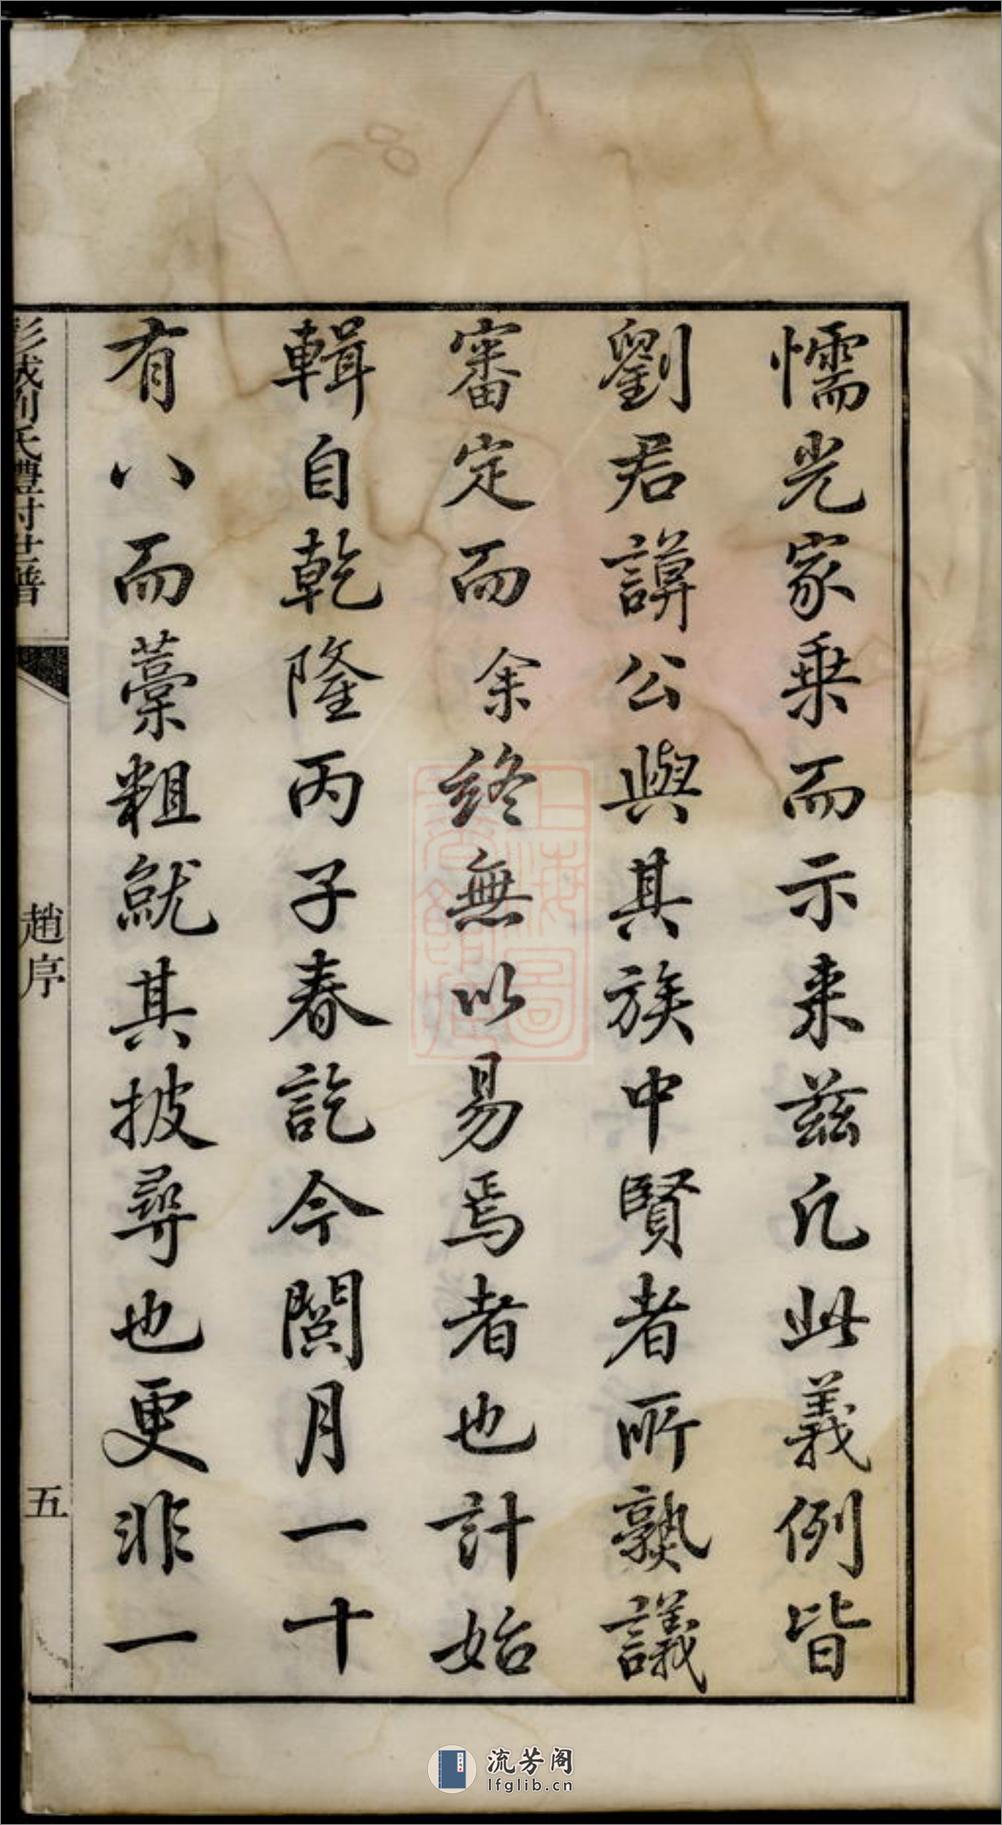 懦光家乗而示来茲凡此義例皆
劉君諱公與其族中賢者所熟議
審定而余終無以易焉者也計始
輯自乾隆丙子春訖今閲月一十
有八而藁粗就其披尋也更非一
彭城劉氏禮村世譜
趙序
五
上海圖書館藏
流芳阁
lfglib.cn